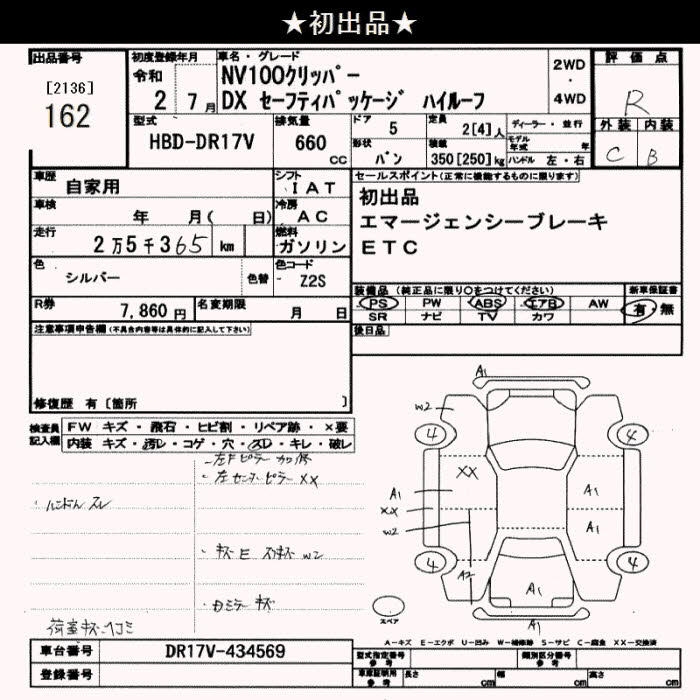 ★初出品★
出品番号
[2136]
162
初度登録年月
令和
2 7月
車名・グレード
NV100クリッパー
DX セーフティパッケージ ハイルーフ
2WD
・
4WD
評価点
R
外装 内装
C B
型式
HBD-DR17V
排気量
660
cc
ドア
5
定員
2[4]人
ディーラー・並行
モデル年式 年
形状
バン
積載
350[250]kg
ハンドル 左・右
車歴
自家用
シフト
IAT
車検
年 月( 日)
冷房
AC
走行
2万5千365 km
燃料
ガソリン
色
シルバー
色替
色コード
Z2S
R券
7,860円
名変期限
月 日
セールスポイント(正常に機能するものに限ります)
初出品
エマージェンシーブレーキ
ETC
装備品 (純正品に限り○をつけてください)
PS PW ABS エアB AW
SR ナビ TV カワ
新車保証書
有・無
後日品
注意事項申告欄(不具合内容等は具体的に記入して下さい)
修復歴 有〔箇所 〕
検査員記入欄
FW キズ・飛石・ヒビ割・リペア跡・×要
内装 キズ・汚レ・コゲ・穴・スレ・キレ・破レ
・左Fピラー カロ修
・左センターピラー XX
・ハンドル スレ
・キズ E スリキズ W2
・Dミラー キズ
荷室キズ・ヘコミ
A1
W2
4
4
XX
A1
XX
W2
A1
A1
4
4
A2
A1
A1
スペア
A-キズ E-エクボ U-凹み W-補修跡 S-サビ C-腐食 XX-交換済
車台番号
DR17V-434569
登録番号
型式指定番号
参考
類別区分番号
参考
車庫証明用
参考
長さ cm
幅 cm
高さ cm